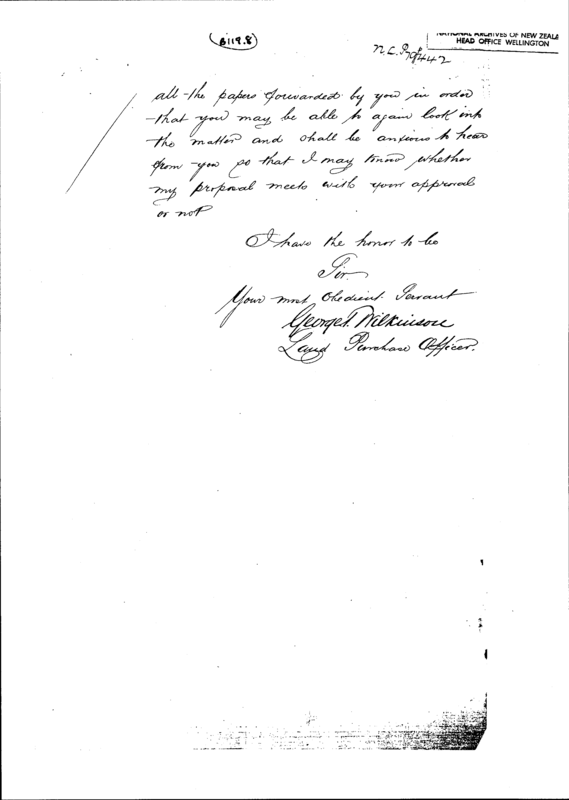 B119.8
NATIONAL ARCHIVES OF NEW ZEALA
HEAD OFFICE WELLINGTON
N.L.P. 442
all the papers forwarded by you in order
that you may be able to again look into
the matter and shall be anxious to hear
from you so that I may know whether
my proposal meets with your approval
or not
I have the honor to be
Sir
Your most Obedient Servant
George T. Wilkinson
Land Purchase Officer.